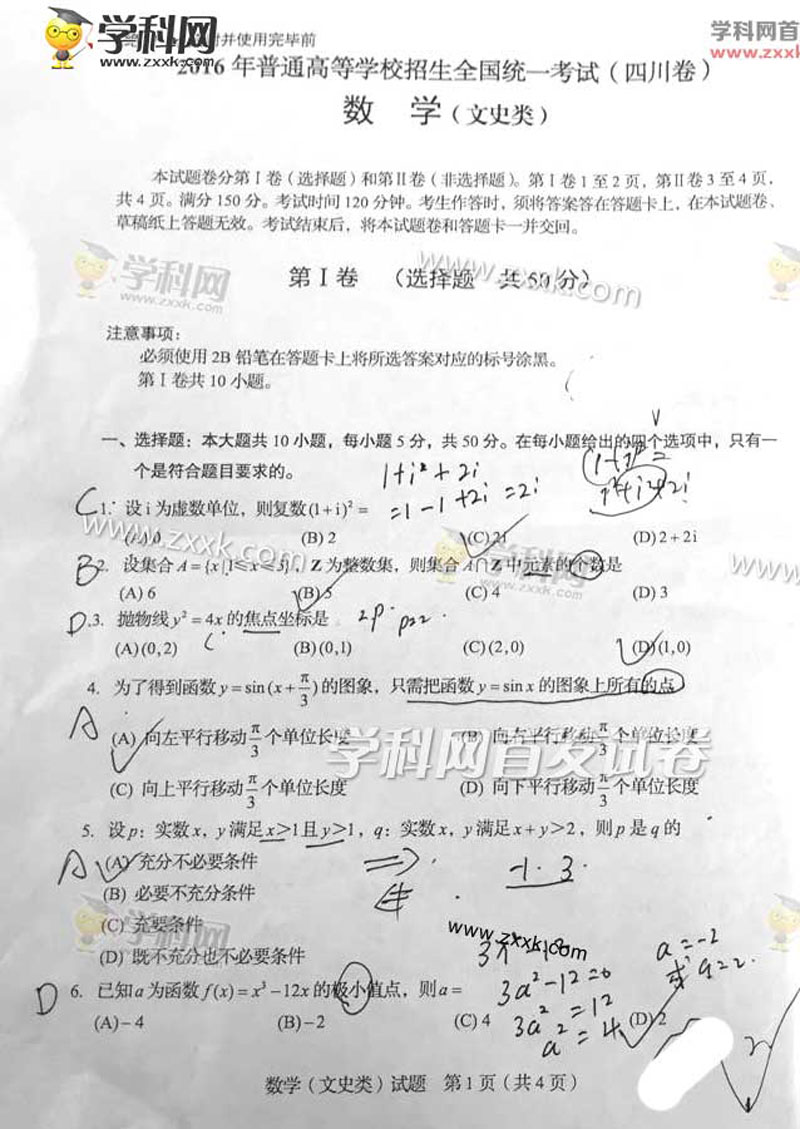 学科网
www.zxxk.com
学科网首
www.zxxk
并使用完毕前
2016年普通高等学校招生全国统一考试(四川卷)
数 学(文史类)
本试题卷分第Ⅰ卷(选择题)和第Ⅱ卷(非选择题)。第Ⅰ卷1至2页,第Ⅱ卷3至4页,
共4页。满分150分。考试时间120分钟。考生作答时,须将答案答在答题卡上,在本试题卷、
草稿纸上答题无效。考试结束后,将本试题卷和答题卡一并交回。
学科网
www.zxxk.com
www.zxxk.com
第Ⅰ卷 (选择题 共50分)
注意事项:
必须使用2B铅笔在答题卡上将所选答案对应的标号涂黑。
第Ⅰ卷共10小题。
一、选择题:本大题共10小题,每小题5分,共50分。在每小题给出的四个选项中,只有一
个是符合题目要求的。
1+i²+2i
=1-1+2i=2i
C 1. 设i为虚数单位,则复数(1+i)²=
(A)0 (B)2 (C)2i (D)2+2i
www.zxxk.com
学科网
B 2. 设集合A={x|1≤x≤5},Z为整数集,则集合A∩Z中元素的个数是
(A)6 (B)5 (C)4 (D)3
D 3. 抛物线y²=4x的焦点坐标是 2p. p=2.
(A)(0,2) (B)(0,1) (C)(2,0) (D)(1,0)
4. 为了得到函数y=sin(x+π/3)的图象,只需把函数y=sin x的图象上所有的点
A
(A) 向左平行移动π/3个单位长度 (B) 向右平行移动π/3个单位长度
学科网首发试卷
(C) 向上平行移动π/3个单位长度 (D) 向下平行移动π/3个单位长度
5. 设p:实数x,y满足x>1且y>1,q:实数x,y满足x+y>2,则p是q的
A (A) 充分不必要条件
-1. 3.
(B) 必要不充分条件
(C) 充要条件
(D) 既不充分也不必要条件
学科网
www.zxxk.com
www.zxxk.com
a=-2
或a=2.
D 6. 已知a为函数f(x)=x³-12x的极小值点,则a=
3a²-12=0
3a²=12
a²=4
(A)-4 (B)-2 (C)4 (D)2
2
数学(文史类)试题 第1页(共4页)